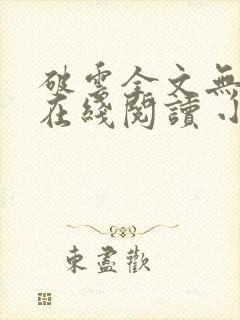 破雲全文無
在綫閱讀小
東盡歡